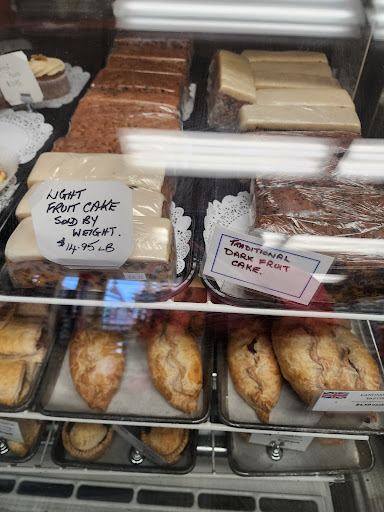 LIGHT
FRUIT CAKE
SOLD BY
WEIGHT.
$14.95 LB
TRADITIONAL
DARK FRUIT
CAKE.